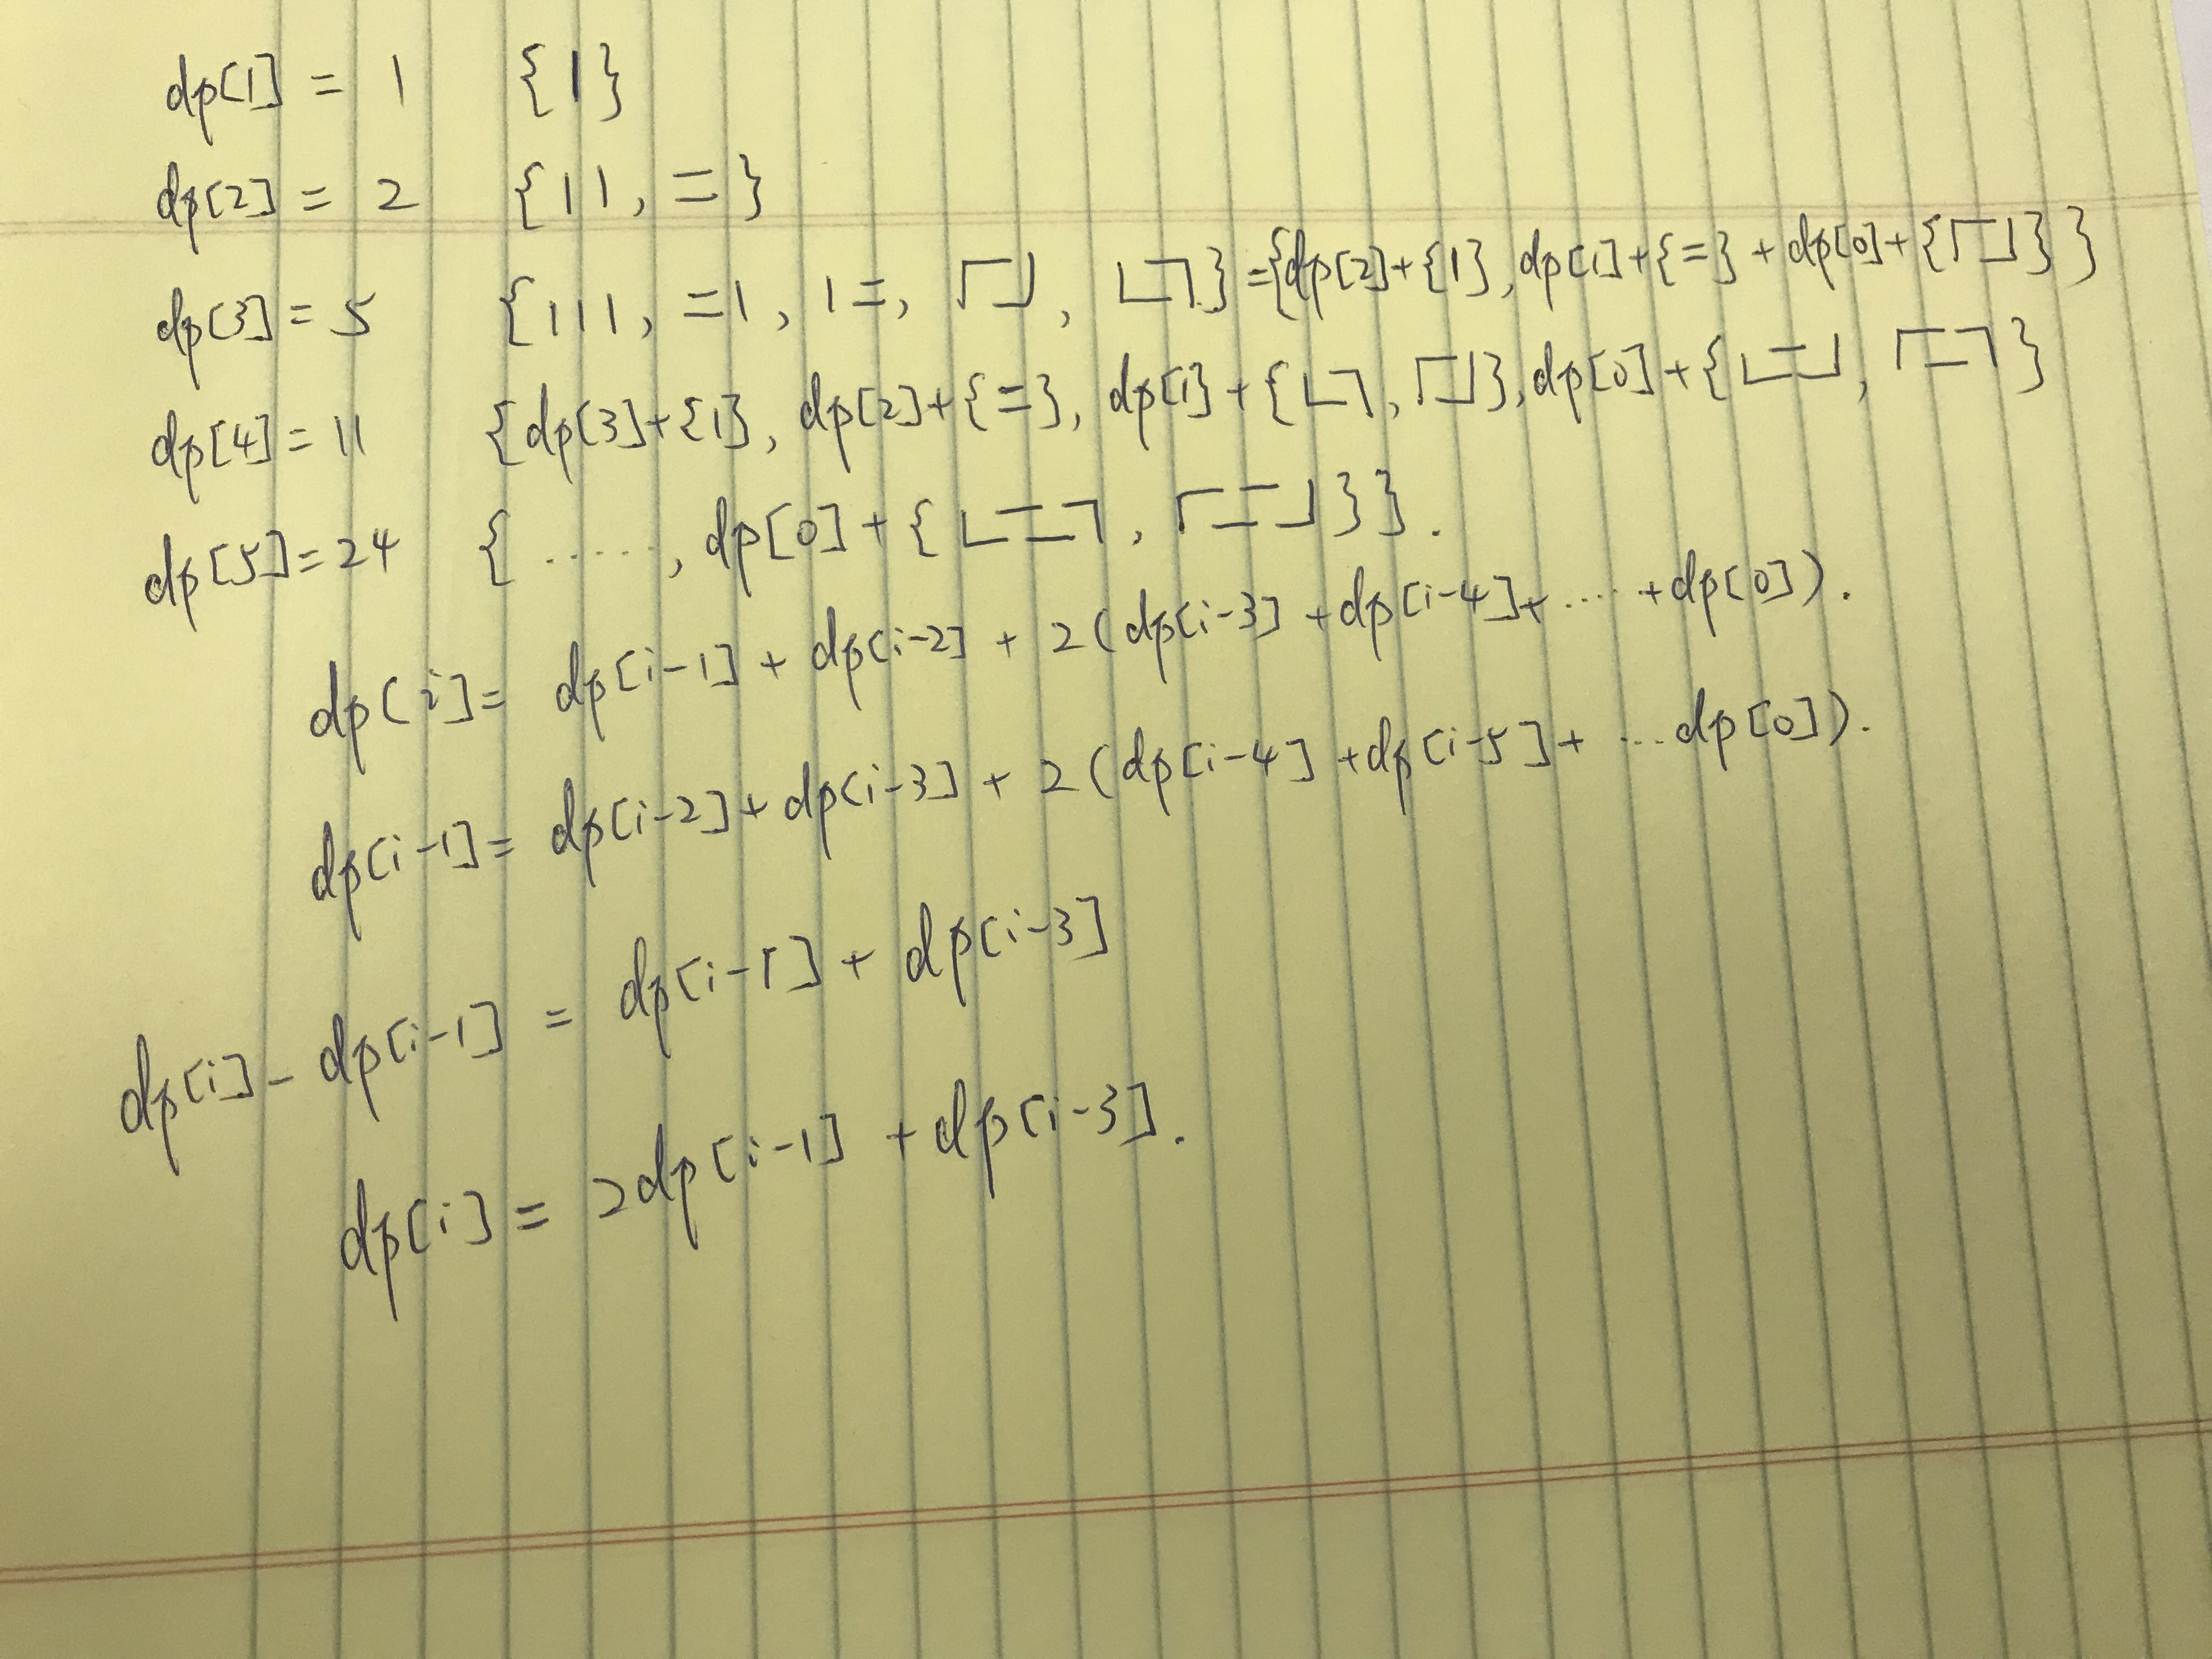 dp[1] = 1 {1}
dp[2] = 2 {11, =}
dp[3] = 5 {111, =1, 1=, ┌─┘, └─┐} = {dp[2]+{1}, dp[1]+{=} + dp[0]+{┌─┘}}
dp[4] = 11 {dp[3]+{1}, dp[2]+{=}, dp[1]+{└┐, ┌┘}, dp[0]+{└=┘, ┌=┐}
dp[5] = 24 {....., dp[0]+{└==┐, ┌==┘}}.
dp[i] = dp[i-1] + dp[i-2] + 2(dp[i-3] + dp[i-4]+ .... + dp[0]).
dp[i-1] = dp[i-2] + dp[i-3] + 2(dp[i-4] + dp[i-5] + ... dp[0]).
dp[i] - dp[i-1] = dp[i-1] + dp[i-3]
dp[i] = 2dp[i-1] + dp[i-3].